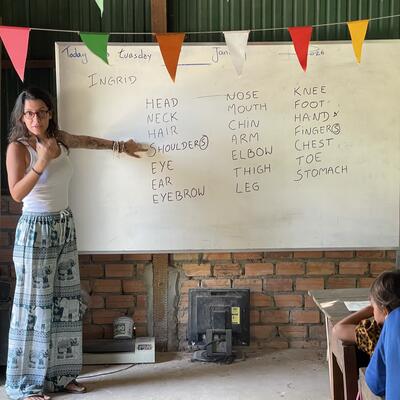 Today is tuesday Jan 2026
INGRID
HEAD
NECK
HAIR
SHOULDERS
EYE
EAR
EYEBROW
NOSE
MOUTH
CHIN
ARM
ELBOW
THIGH
LEG
KNEE
FOOT
HAND
FINGERS
CHEST
TOE
STOMACH